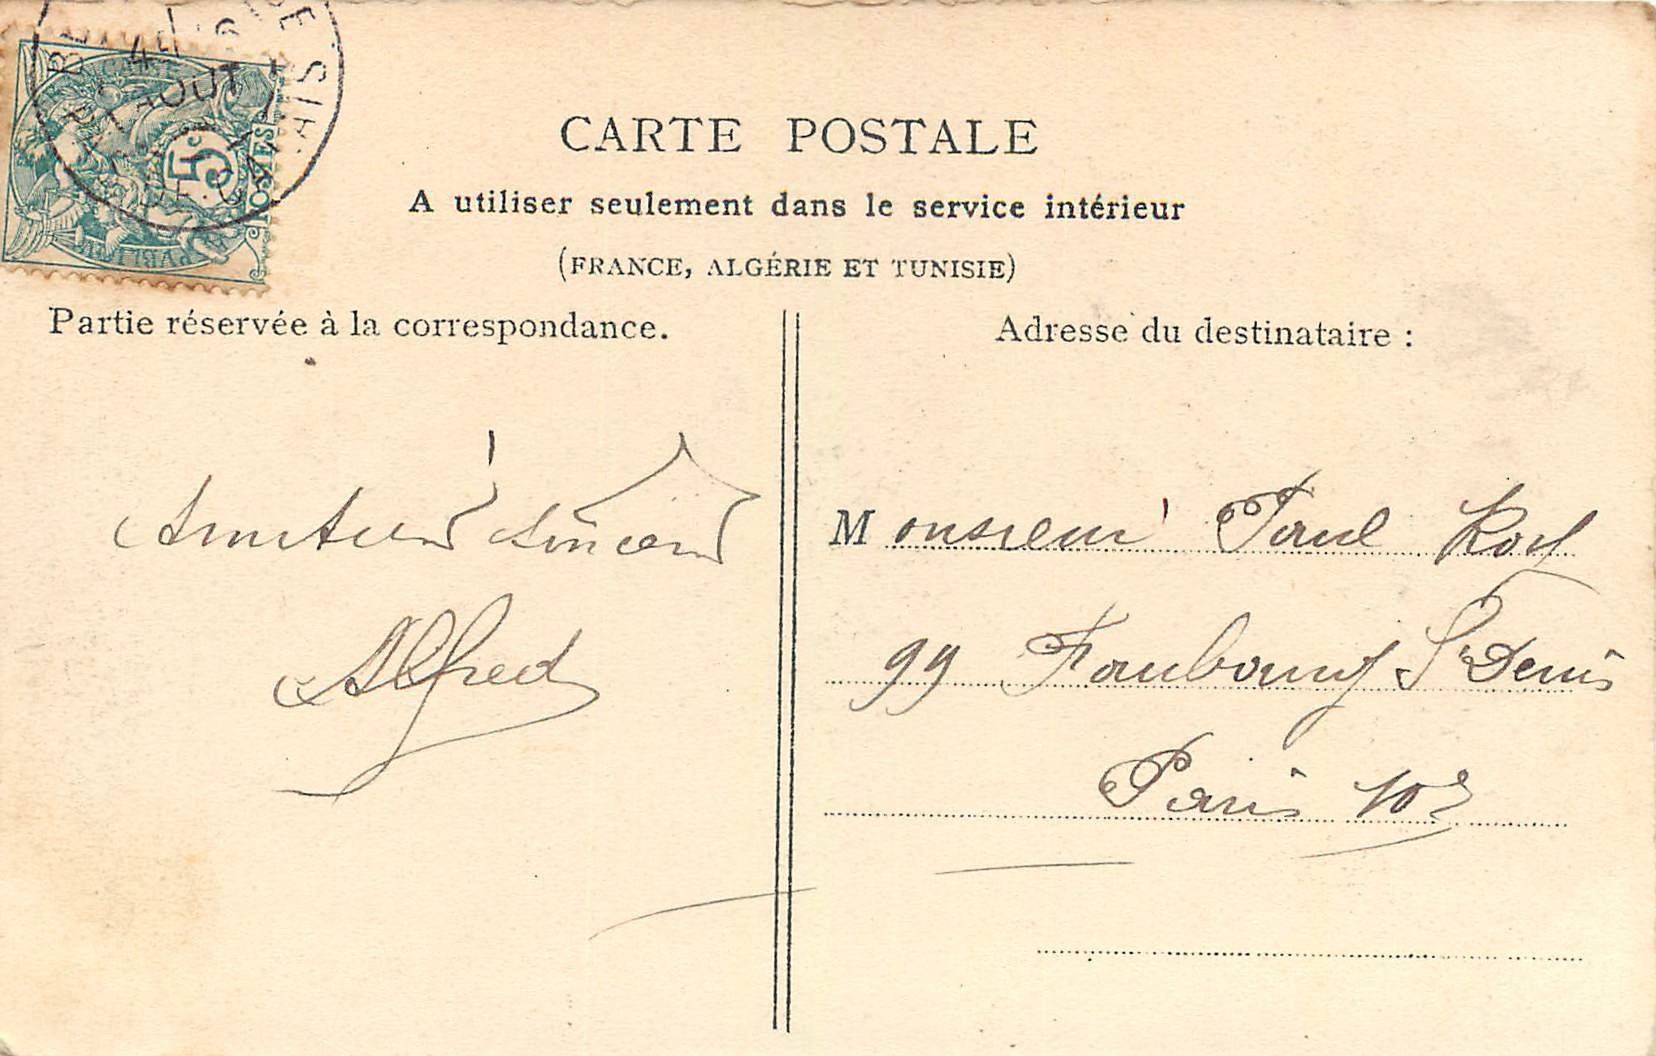 5c
POSTES
AOUT
CARTE POSTALE
A utiliser seulement dans le service intérieur
(FRANCE, ALGÉRIE ET TUNISIE)
Partie réservée à la correspondance.
Adresse du destinataire :
Alfred
Monsieur Paul Roy
99 Faubourg St Denis
Paris 10e